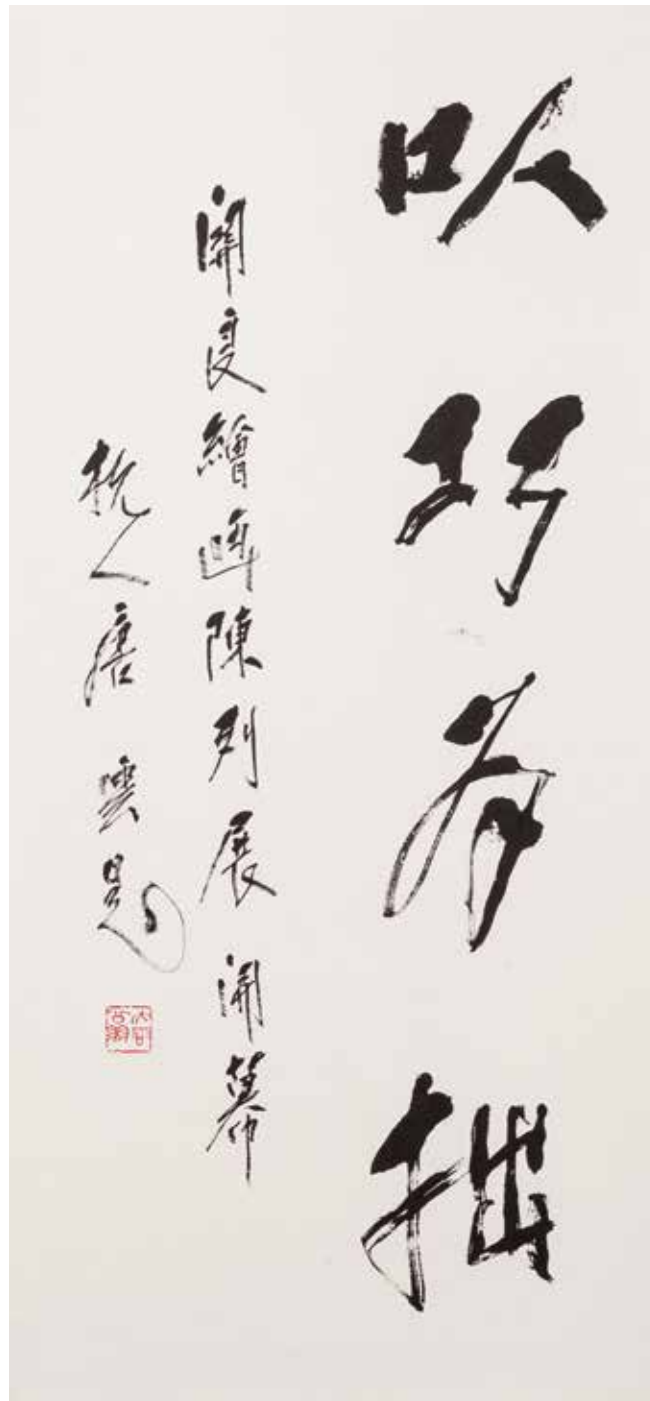 以巧拙
關良繪畫陳列展開幕
杭人唐雲題